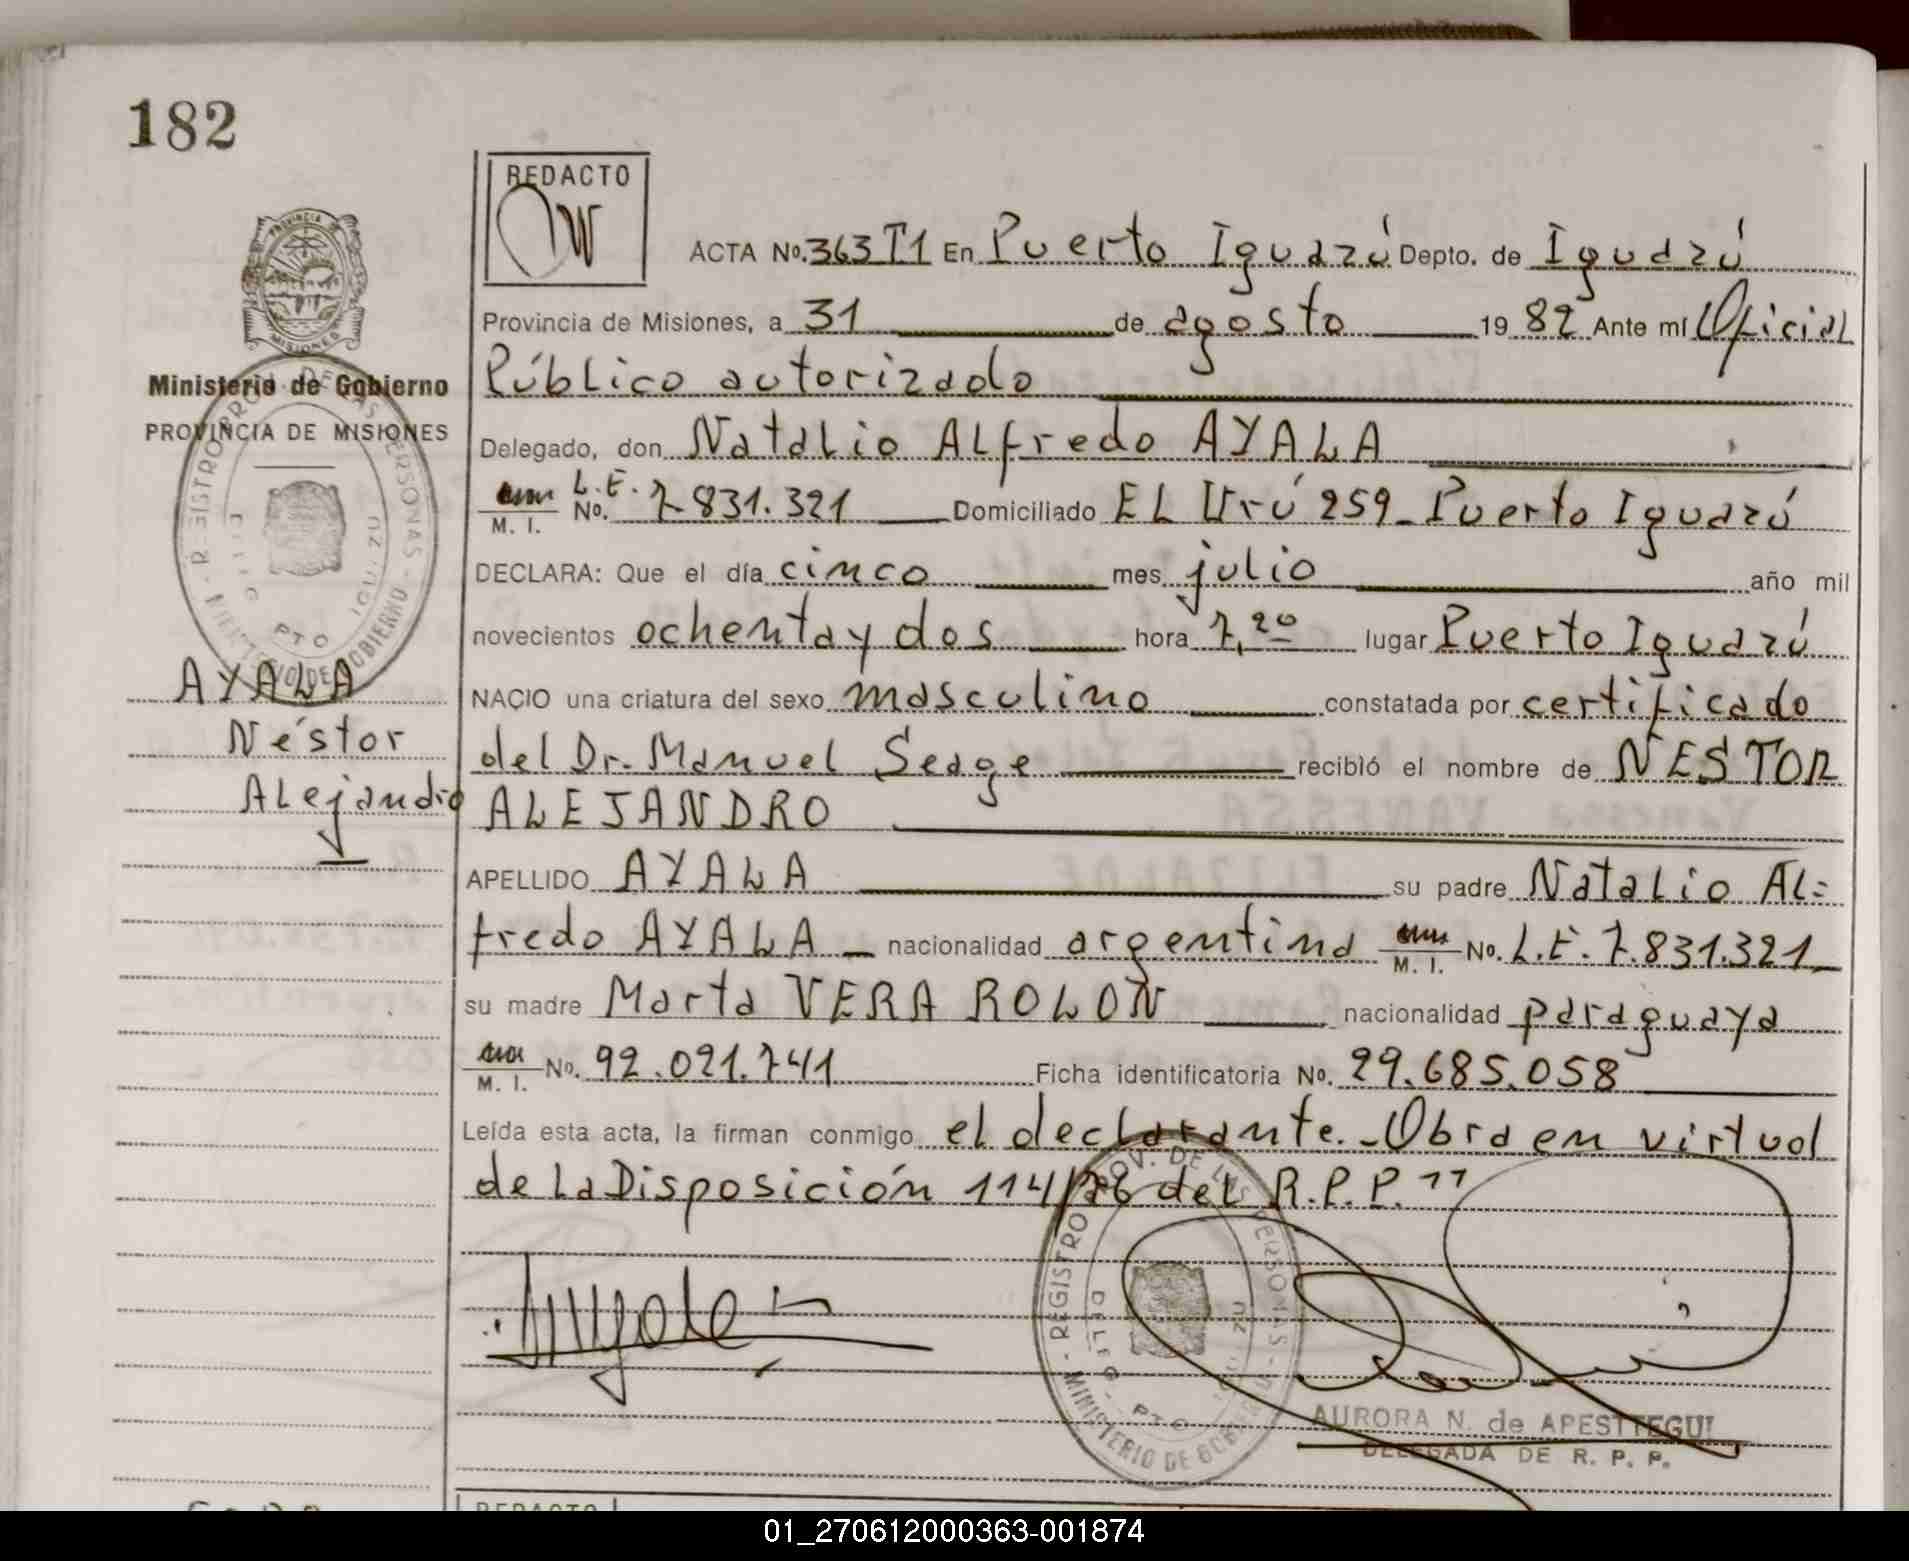 182
REDACTO
ACTA No. 363 T1 En Puerto Iguazú Depto. de Iguazú
Provincia de Misiones, a 31 de agosto 1982 Ante mí Oficial
Público autorizado
Delegado, don Natalio Alfredo AYALA
M. I. L.E. No. 7.831.321 Domiciliado El Urú 259 - Puerto Iguazú
DECLARA: Que el día cinco mes julio año mil
novecientos ochenta y dos hora 7,20 lugar Puerto Iguazú
NACIO una criatura del sexo masculino constatada por certificado
del Dr. Manuel Seage recibió el nombre de NESTOR
ALEJANDRO
APELLIDO AYALA su padre Natalio Al=
fredo AYALA nacionalidad argentina M. I. No. L.E. 7.831.321
su madre Marta VERA ROLON nacionalidad paraguaya
M. I. No. 92.021.741 Ficha identificatoria No. 29.685.058
Leída esta acta, la firman conmigo el declarante.-Obra en virtud
de la Disposición 114/76 del R.P.P.""
PROVINCIA DE MISIONES
Ministerio de Gobierno
PROVINCIA DE MISIONES
REGISTRO PROV. DE LAS PERSONAS - MINISTERIO DE GOBIERNO
DELEG. PTO IGUAZU
AYALA
Néstor
Alejandro
REGISTRO PROV. DE LAS PERSONAS - MINISTERIO DE GOBIERNO
DELEG. PTO
AURORA N. de APESTTEGUI
DELEGADA DE R. P. P.
REDACTO
01_270612000363-001874